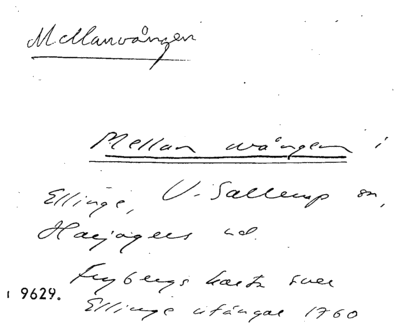 Mellanvången
Mellan wången i
Ellinge, V. Sallerup sn,
Harjagers hd.
Frybergs karta över
Ellinge utängar 1760
9629.